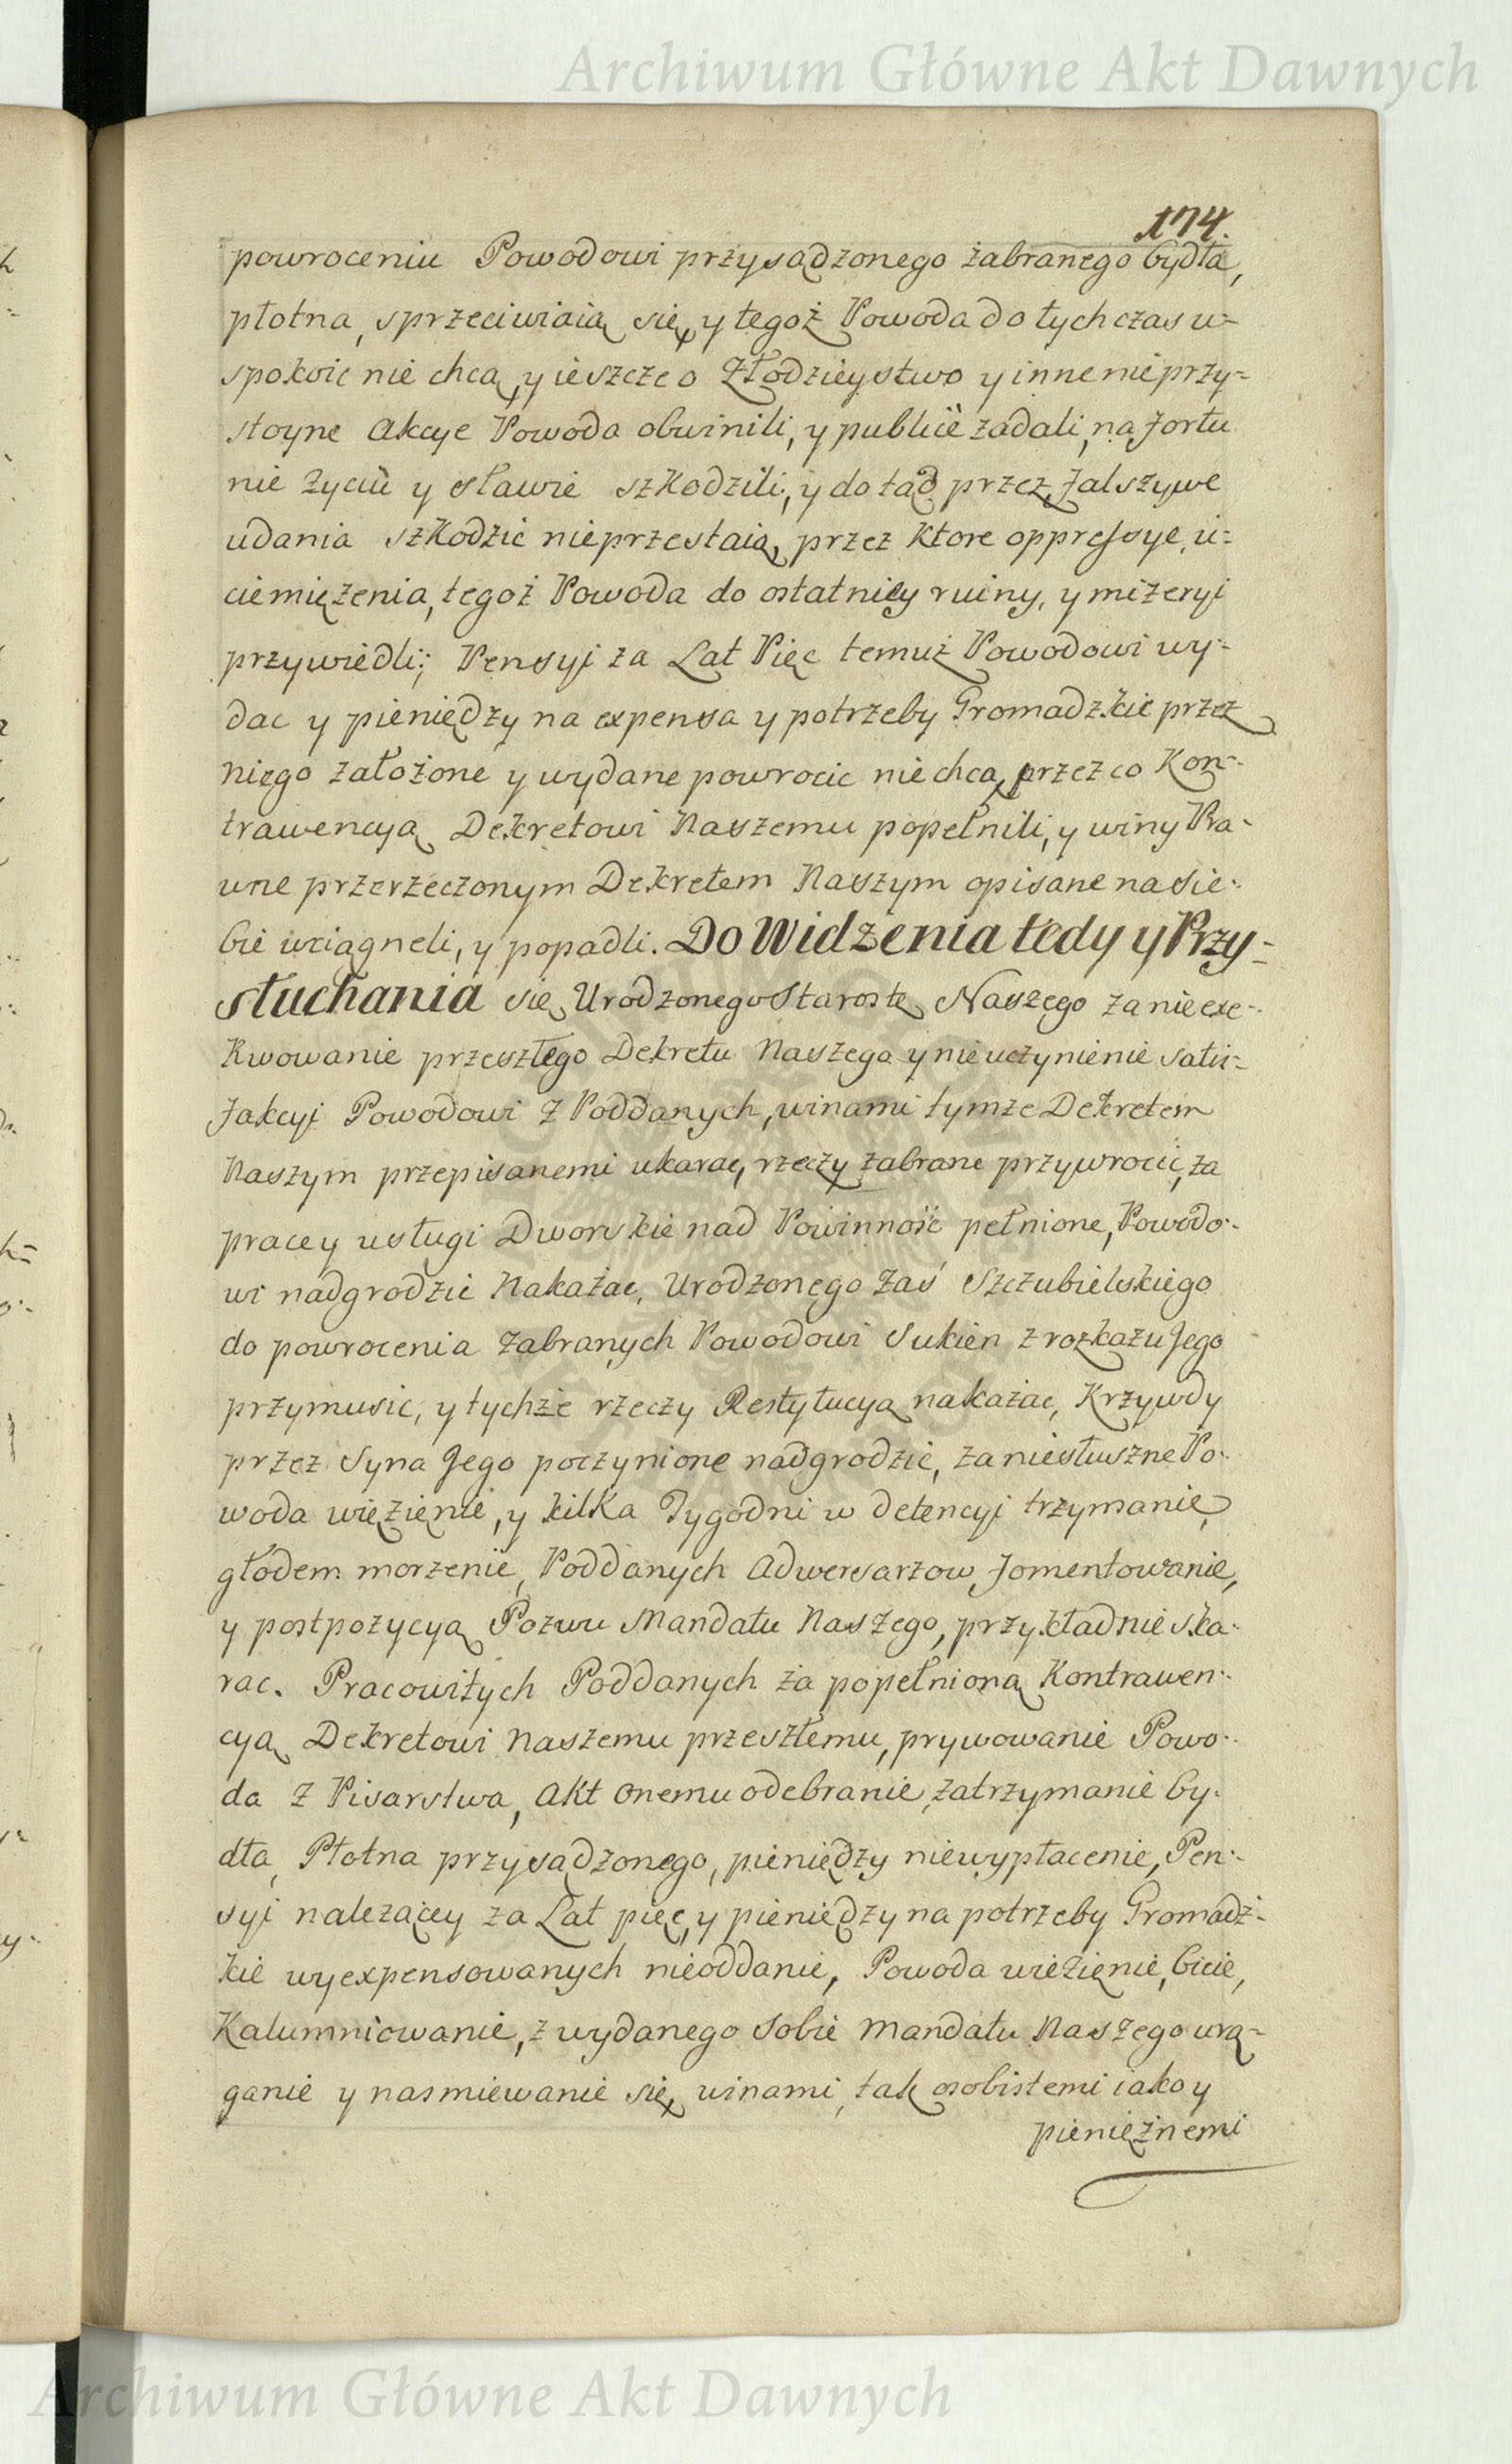 Archiwum Główne Akt Dawnych
174.
powroceniu Powodowi przysądzonego żabranego bydła,
płotna, sprzeciwiaią się, y tegoż Powoda do tychczas u=
spokoic nie chcą, y ieszcze o Złodzieystwo y inne nieprzy=
stoyne Akcye Powoda obwinili, y publicè żadali, na fortu
nie życiu y sławie szkodzili, y dotąd przez fałszywe
udania szkodzic nieprzestaią, przez ktore oppressye, u=
ciemiężenia, tegoż Powoda do ostatniey ruiny, y mizeryi
przywiedli; Pensyi za Lat Pięc temuż Powodowi wy=
dac y pieniędzy na expensa y potrzeby Gromadzkie przez
niego założone y wydane powrocic nie chcą, przez co Kon=
trawencyą Dekretowi Naszemu popełnili, y winy Pra=
wne przerzeczonym Dekretem Naszym opisane na sie=
bie wciągneli, y popadli. Do Widzenia tedy y Przy=
słuchania się Urodzonego Starostę Naszego za nieexe=
kwowanie przeszłego Dekretu Naszego y nieuczynienie satis=
fakcyi Powodowi z Poddanych, winami tymże Dekretem
Naszym przepisanemi ukarac, rzeczy zabrane przywrocic, za
pracey usługi Dworskie nad Powinność pełnione, Powodo=
wi nadgrodzic Nakazac, Urodzonego zaś Szczubielskiego
do powrocenia zabranych Powodowi Sukien z rozkazu Jego
przymusic, y tychże rzeczy Restytucyą nakazac, Krzywdy
przez Syna Jego poczynione nadgrodzic, za niesłuszne Po=
woda więzięnie, y kilka Tygodni w detencyi trzymanie,
głodem morzenie, Poddanych Adwersarzow fomentowanie,
y postpozycyą Pozwu Mandatu Naszego, przykładnie ska=
rac. Pracowitych Poddanych za popełnioną Kontrawen=
cyą Dekretowi Naszemu przeszłemu, prywowanie Powo=
da z Pisarstwa, Akt onemu odebranie, zatrzymanie by=
dła, Płotna przysądzonego, pieniędzy niewypłacenie, Pen=
syi należącey za Lat pięc, y pieniędzy na potrzeby Gromadz=
kie wyexpensowanych nieoddanie, Powoda więzięnie, bicie,
Kalumniowanie, z wydanego sobie Mandatu Naszego urą=
ganie y nasmiewanie się, winami, tak osobistemi iako y
pieniężnemi
Archiwum Główne Akt Dawnych